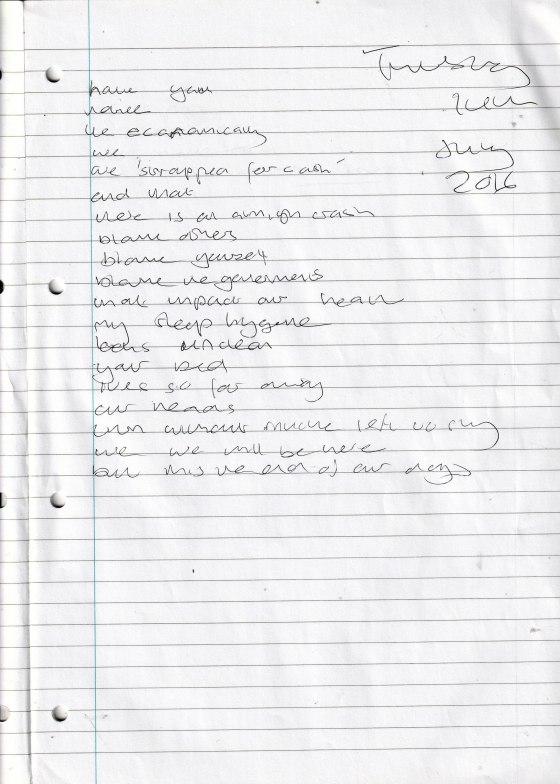 Tuesday
July
2016
have you
we economically
we
are 'strapped for cash'
and what
there is an crash
blame others
blame yourself
blame the governments
what impact our health
my sleep hygiene
feels unclean
your bed
lies so far away
our heads
with without much left to say
we will be here
but this the end of our days